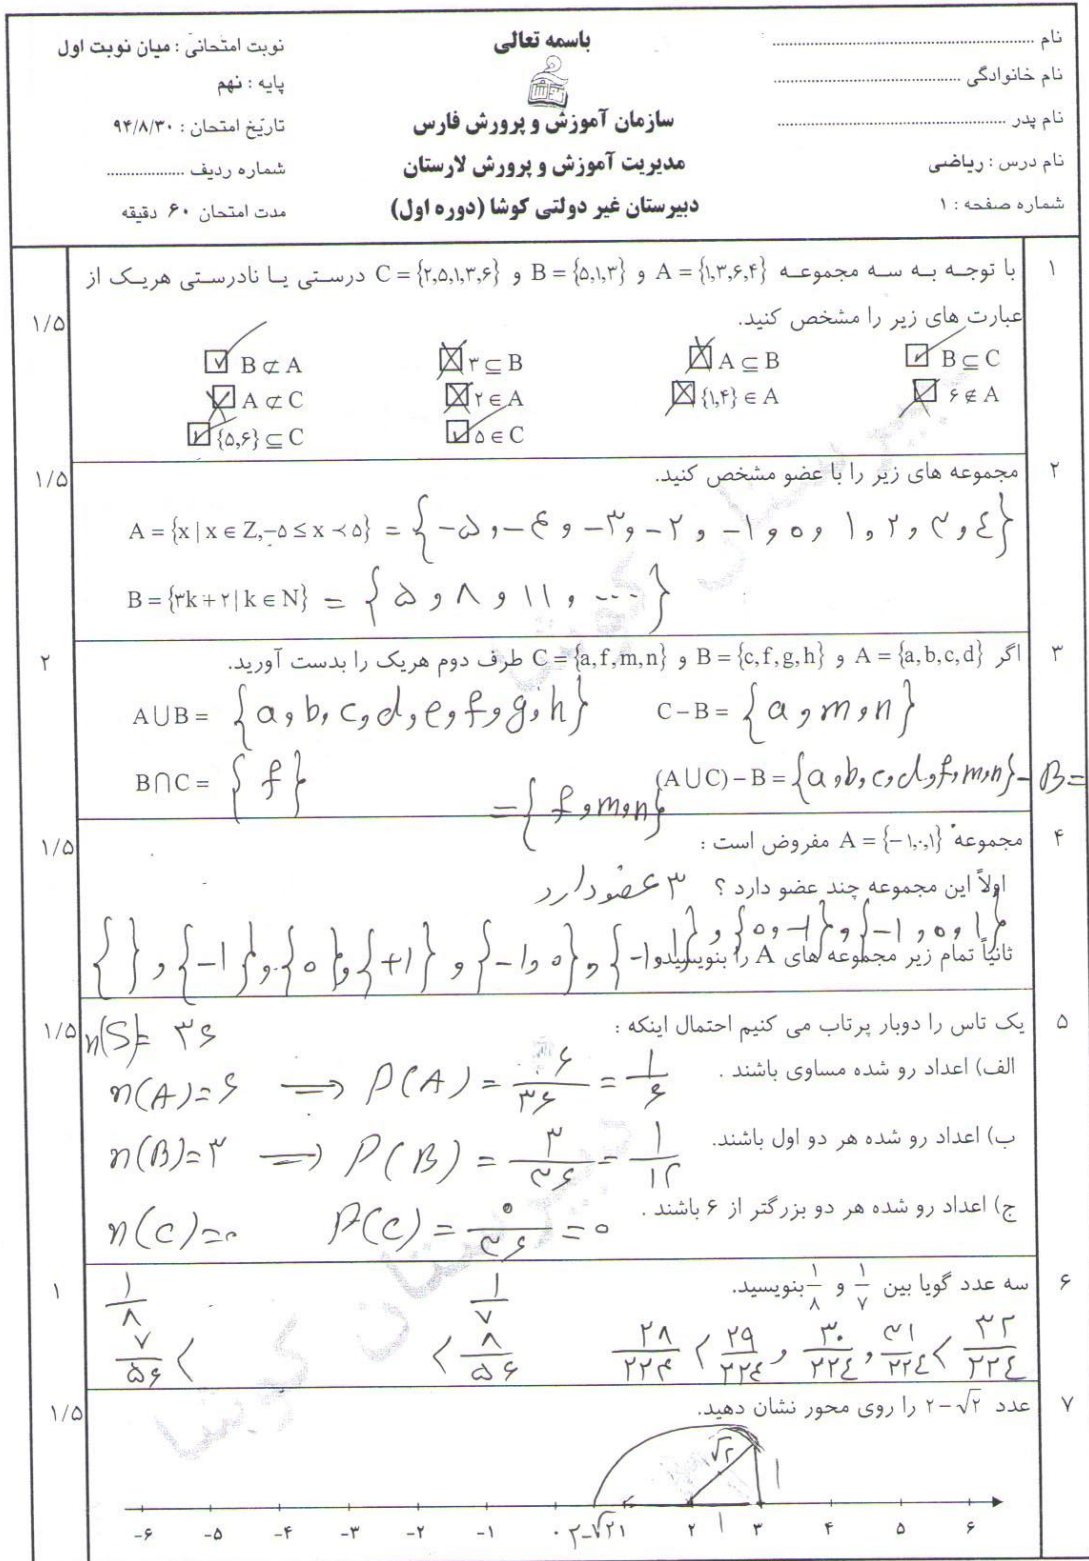 باسمه تعالی
نام
نام خانوادگی
نام پدر
نام درس : ریاضی
شماره صفحه : ۱
سازمان آموزش و پرورش فارس
مدیریت آموزش و پرورش لارستان
دبیرستان غیر دولتی کوشا (دوره اول)
نوبت امتحانی : میان نوبت اول
پایه : نهم
تاریخ امتحان : ۹۴/۸/۳۰
شماره ردیف
مدت امتحان ۶۰ دقیقه
۱ با توجه به سه مجموعه A = {۱,۳,۶,۴} و B = {۵,۱,۳} و C = {۲,۵,۱,۳,۶} درستی یا نادرستی هریک از
عبارت های زیر را مشخص کنید. ۱/۵
B ⊆ C A ⊆ B ۳ ⊆ B B ⊄ A
۶ ∉ A {۱,۴} ∈ A ۲ ∈ A A ⊄ C
۵ ∈ C {۵,۶} ⊆ C
۲ مجموعه های زیر را با عضو مشخص کنید. ۱/۵
A = {x | x ∈ Z, −۵ ≤ x < ۵} = {−۵ و −۴ و −۳ و −۲ و −۱ و ۰ و ۱ و ۲ و ۳ و ۴}
B = {۳k + ۲ | k ∈ N} = {۵ و ۸ و ۱۱ و ...}
۳ اگر A = {a,b,c,d} و B = {c,f,g,h} و C = {a,f,m,n} طرف دوم هریک را بدست آورید. ۲
A∪B = {a و b و c و d و e و f و g و h} C − B = {a و m و n}
B∩C = {f} (A∪C) − B = {a و b و c و d و f و m و n} − B =
= {f و m و n}
۴ مجموعه A = {−۱,۰,۱} مفروض است : ۱/۵
اولاً این مجموعه چند عضو دارد ؟ ۳ عضو دارد
ثانیاً تمام زیر مجموعه های A را بنویسید
{ } و {−۱} و {۰} و {+۱} و {−۱ و ۰} و
۵ یک تاس را دوبار پرتاب می کنیم احتمال اینکه : ۱/۵
n(S) = ۳۶
الف) اعداد رو شده مساوی باشند .
n(A) = ۶ ⟹ P(A) = ۶/۳۶ = ۱/۶
ب) اعداد رو شده هر دو اول باشند.
n(B) = ۳ ⟹ P(B) = ۳/۳۶ = ۱/۱۲
ج) اعداد رو شده هر دو بزرگتر از ۶ باشند .
n(C) = ۰ P(C) = ۰/۳۶ = ۰
۶ سه عدد گویا بین ۱/۷ و ۱/۸ بنویسید. ۱
۱/۸ ۱/۷
۷/۵۶ < < ۸/۵۶ ۲۸/۲۲۴ < ۲۹/۲۲۴ و ۳۰/۲۲۴ و ۳۱/۲۲۴ < ۳۲/۲۲۴
۷ عدد ۲−√۲ را روی محور نشان دهید. ۱/۵
√۲ ۱
−۶ −۵ −۴ −۳ −۲ −۱ ۰ ۲−√۲ ۱ ۲ ۱ ۳ ۴ ۵ ۶
دبیرستان کوشا
دبیرستان کوشا